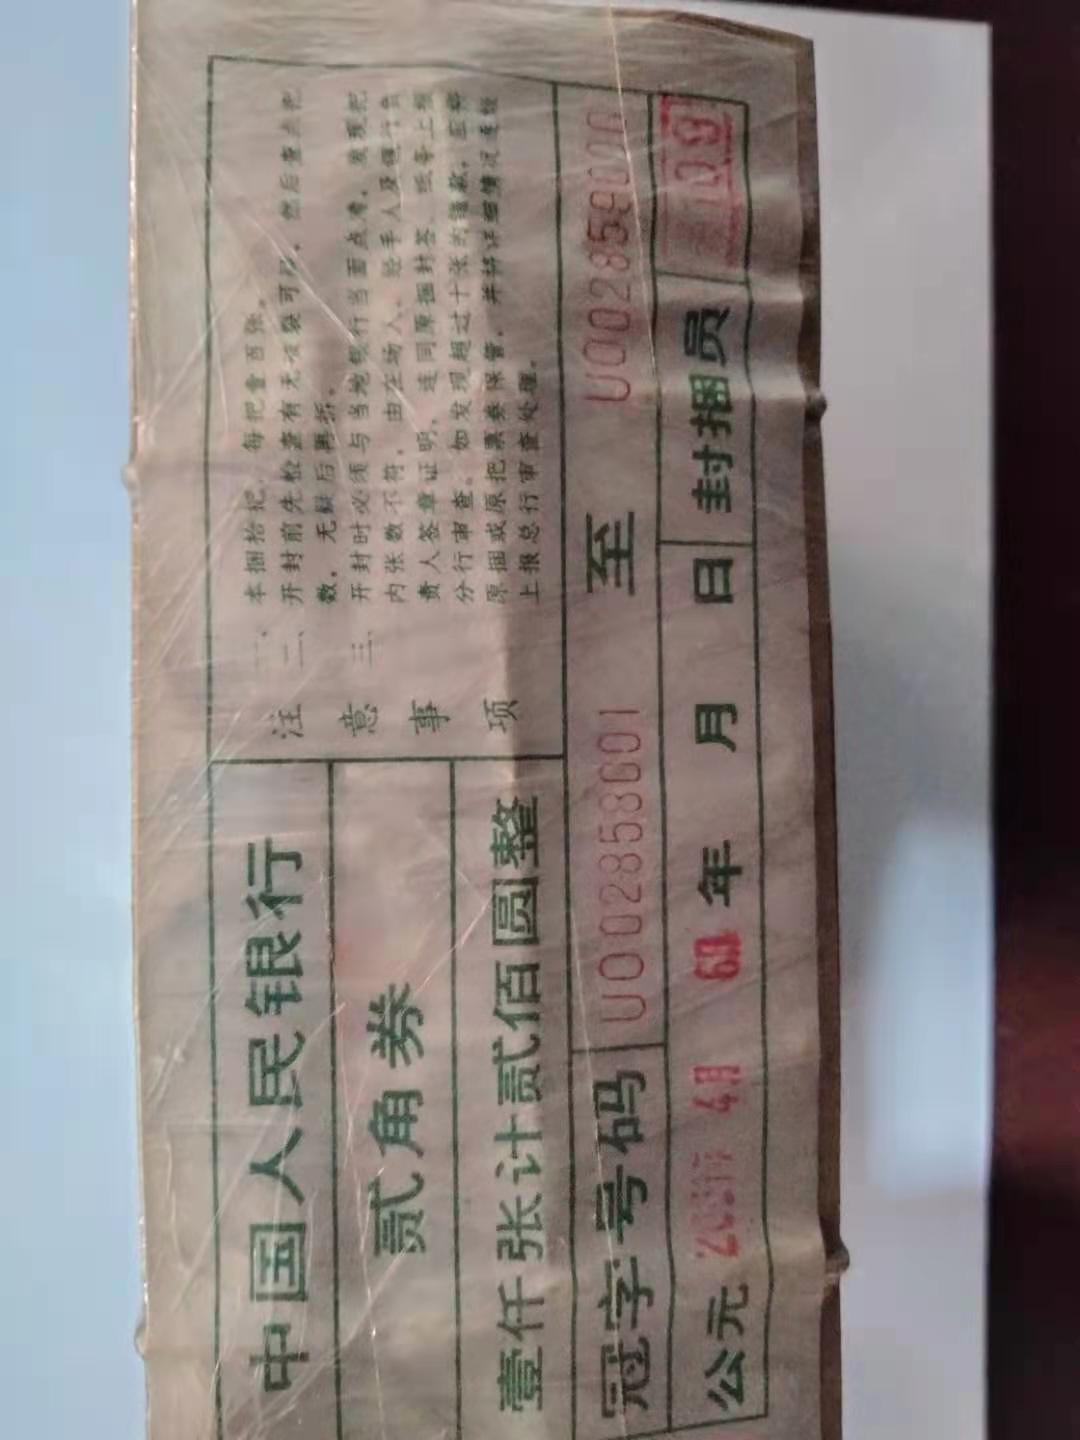 中国人民银行
贰角券
壹仟张计贰佰圆整
注意事项
一、本捆拾把，每把壹百张。
二、开封前先检查有无破裂可疑，然后查点把
数，无疑后再拆。
三、开封时必须与当地银行当面点清，发现把
内张数不符，由在场人、经手人及银行负
责人签章证明，连同原捆封签、纸等上报
分行审查。如发现超过十张的错款，应将
原捆或原把票券保管，并将详细情况连报
上报总行审查处理。
冠字号码 U002858001 至 U002859000
公元 年 月 日 封捆员